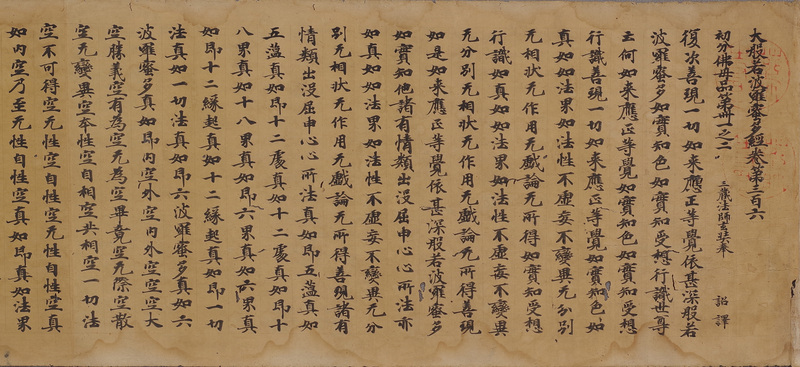 大般若波羅蜜多經卷第三百六
初分佛母品第卌一之二 三藏法師玄奘奉 詔譯
復次善現一切如來應正等覺依甚深般若
波羅蜜多如實知色如實知受想行識世尊
云何如來應正等覺如實知色如實知受想
行識善現一切如來應正等覺如實知色如
真如如法界如法性不虛妄不變異无分別
无相狀无作用无戲論无所得如實知受想
行識如真如如法界如法性不虛妄不變異
无分別无相狀无作用无戲論无所得善現
如是如來應正等覺依甚深般若波羅蜜多
如實知他諸有情類出沒屈申心心所法亦
如真如如法界如法性不虛妄不變異无分
別无相狀无作用无戲論无所得善現諸有
情類出沒屈申心心所法真如即五蘊真如
五蘊真如即十二處真如十二處真如即十
八界真如十八界真如即六界真如六界真
如即十二緣起真如十二緣起真如即一切
法真如一切法真如即六波羅蜜多真如六
波羅蜜多真如即內空外空內外空空空大
空勝義空有為空无為空畢竟空无際空散
空无變異空本性空自相空共相空一切法
空不可得空无性空自性空无性自性空真
如內空乃至无性自性空真如即真如法界